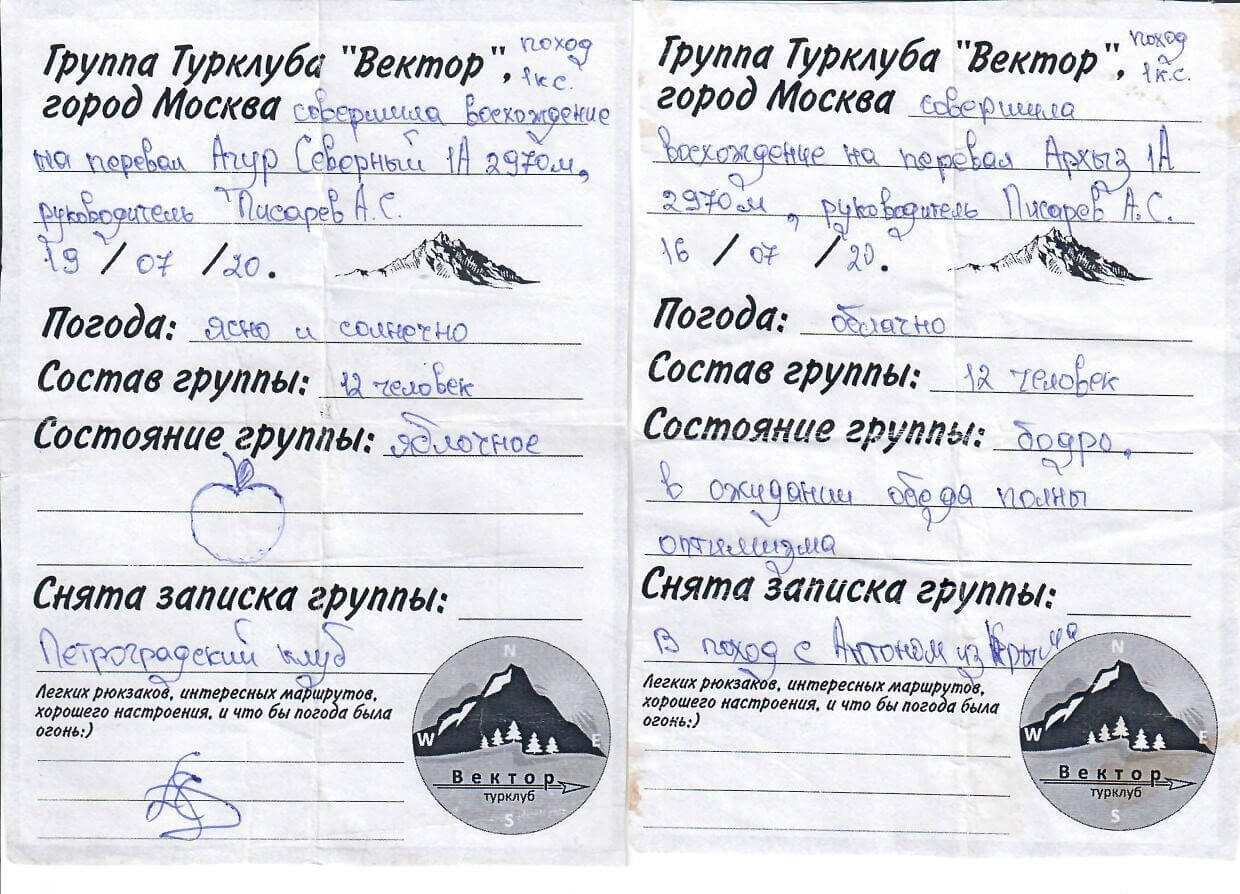 Группа Турклуба "Вектор", поход
1 к.с.
город Москва совершила восхождение
на перевал Агур Северный 1А 2970м,
руководитель Писарев А.С.
19 / 07 / 20.
Погода: ясно и солнечно
Состав группы: 12 человек
Состояние группы: яблочное
Снята записка группы:
Петроградский клуб
Легких рюкзаков, интересных маршрутов,
хорошего настроения, и что бы погода была
огонь:)
N
W E
Вектор
турклуб
S
Группа Турклуба "Вектор", поход
1 к.с.
город Москва совершила
восхождение на перевал Архыз 1А
2970м, руководитель Писарев А.С.
16 / 07 / 20.
Погода: облачно
Состав группы: 12 человек
Состояние группы: бодро,
в ожидании обеда полны
оптимизма
Снята записка группы:
В поход с Антоном из Крыма
Легких рюкзаков, интересных маршрутов,
хорошего настроения, и что бы погода была
огонь:)
N
W E
Вектор
турклуб
S